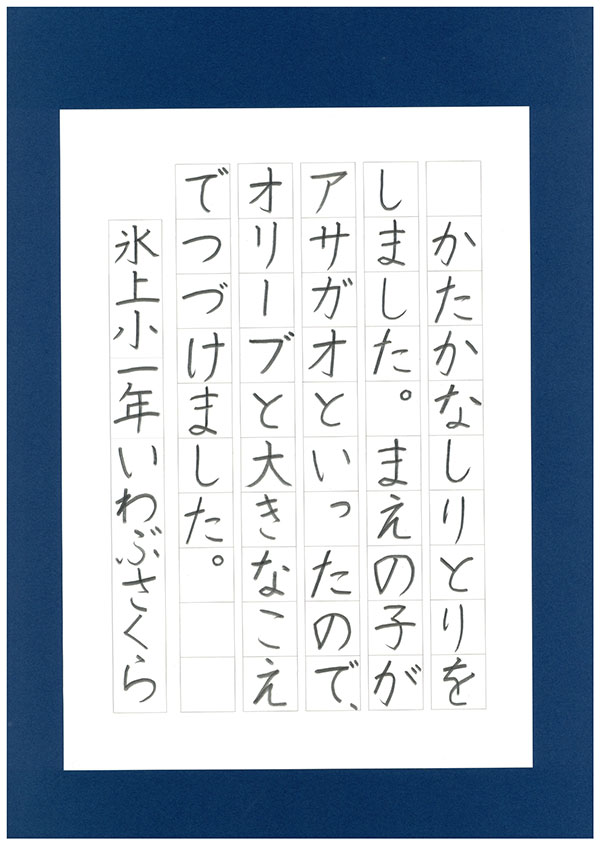 かたかなしりとりを
しました。まえの子が
アサガオといったので、
オリーブと大きなこえ
でつづけました。
氷上小一年いわぶさくら